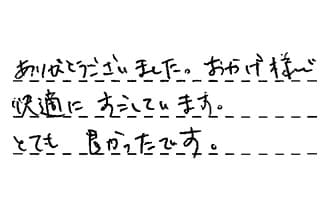 ありがとうございました。おかげ様で
快適にすごしています。
とても 良かったです。